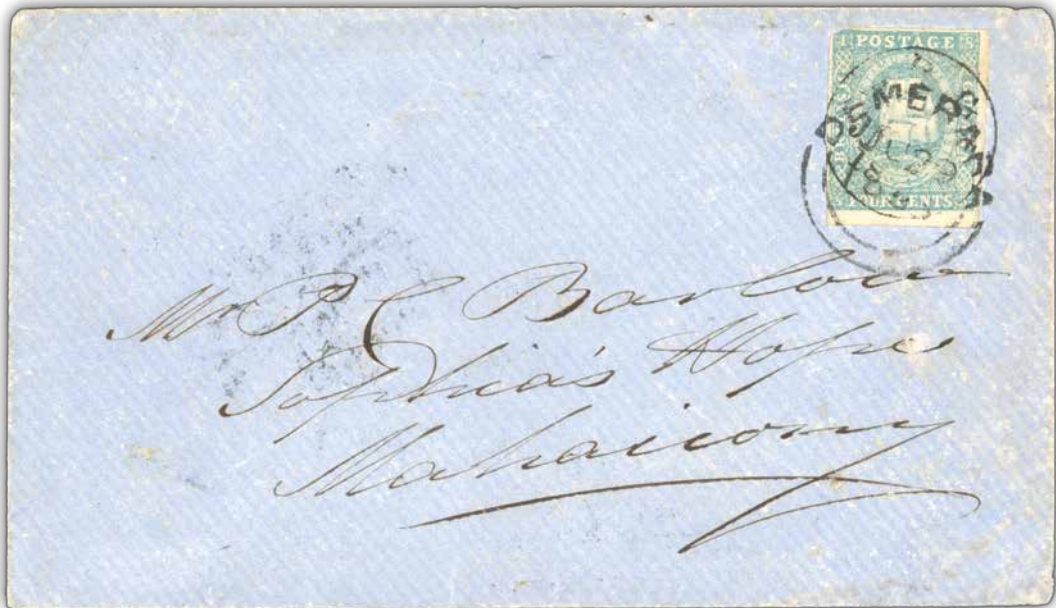 POSTAGE
DEMERARA
FOUR CENTS
Mr P C Barlow
Sophia's Hope
Mahaicony